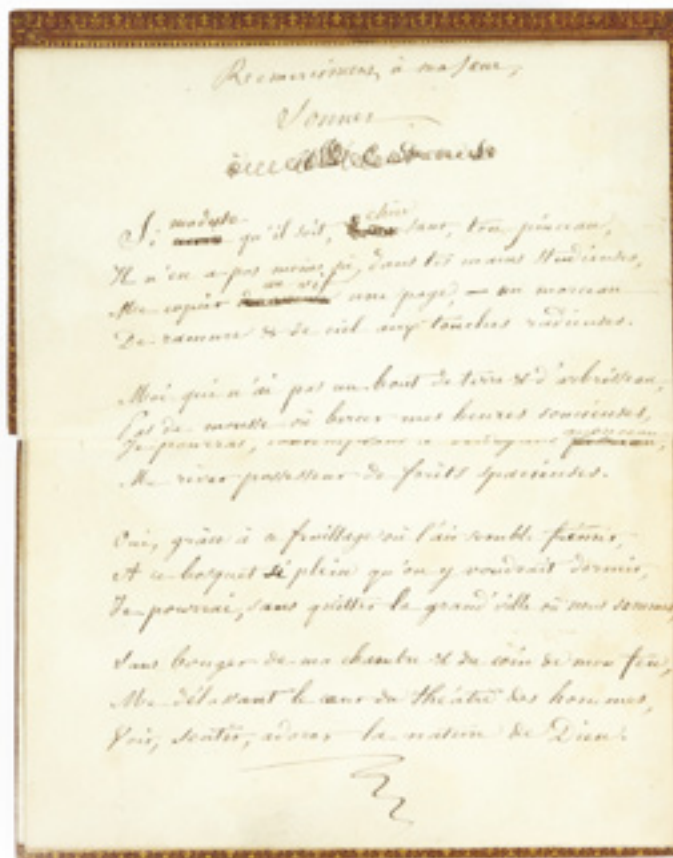 Remerciemens, à ma sœur,
Sonnet
Si modeste qu'il soit, chère sœur, ton pinceau,
Il n'en a pas moins su, dans tes mains studieuses,
Me copier au vif une page, — un morceau
De ramure & de ciel aux touches radieuses.
Moi qui n'ai pas un bout de terre & d'arbrisseau,
Pas de mousse où bercer mes heures soucieuses,
Je pourrai, contemplant ce
Me rêver possesseur de forêts spacieuses.
Oui, grâce à ce feuillage où l'air semble frémir,
A ce bosquet si plein qu'on y voudrait dormir,
Je pourrai, sans quitter la grand' ville où nous sommes,
Sans bouger de ma chambre & du coin de mon feu,
Me délassant le cœur du théâtre des hommes,
Voir, sentir, adorer la nature de Dieu.